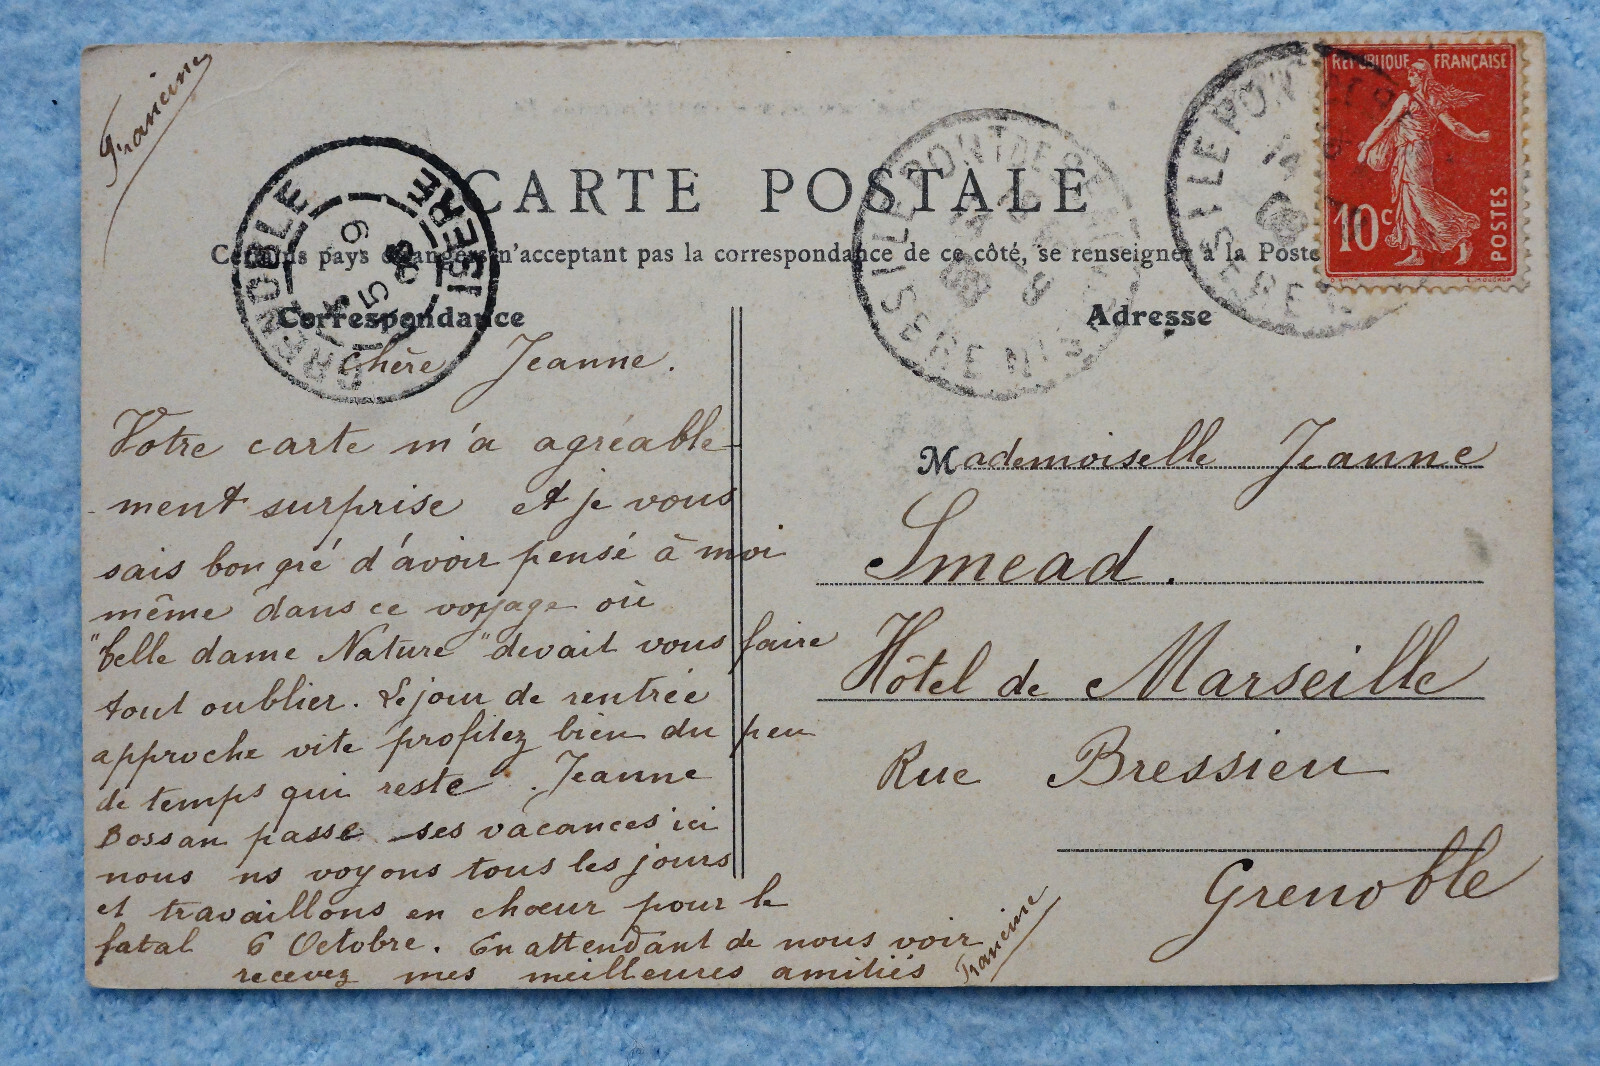 Francine
CARTE POSTALE
Certains pays étrangers n'acceptant pas la correspondance de ce côté, se renseigner à la Poste
Correspondance
Adresse
GRENOBLE
ISERE
REPUBLIQUE FRANÇAISE
10c
POSTES
Chère Jeanne.
Votre carte m'a agréable-
-ment surprise et je vous
sais bon gré d'avoir pensé à moi
même dans ce voyage où
"belle dame Nature" devait vous faire
tout oublier. Le jour de rentrée
approche vite profitez bien du peu
de temps qui reste. Jeanne
Bossan passe ses vacances ici
nous ns voyons tous les jours
et travaillons en chœur pour le
fatal 6 Octobre. En attendant de nous voir
recevez mes meilleures amitiés
Francine
Mademoiselle Jeanne
Smead.
Hôtel de Marseille
Rue Bressieu
Grenoble